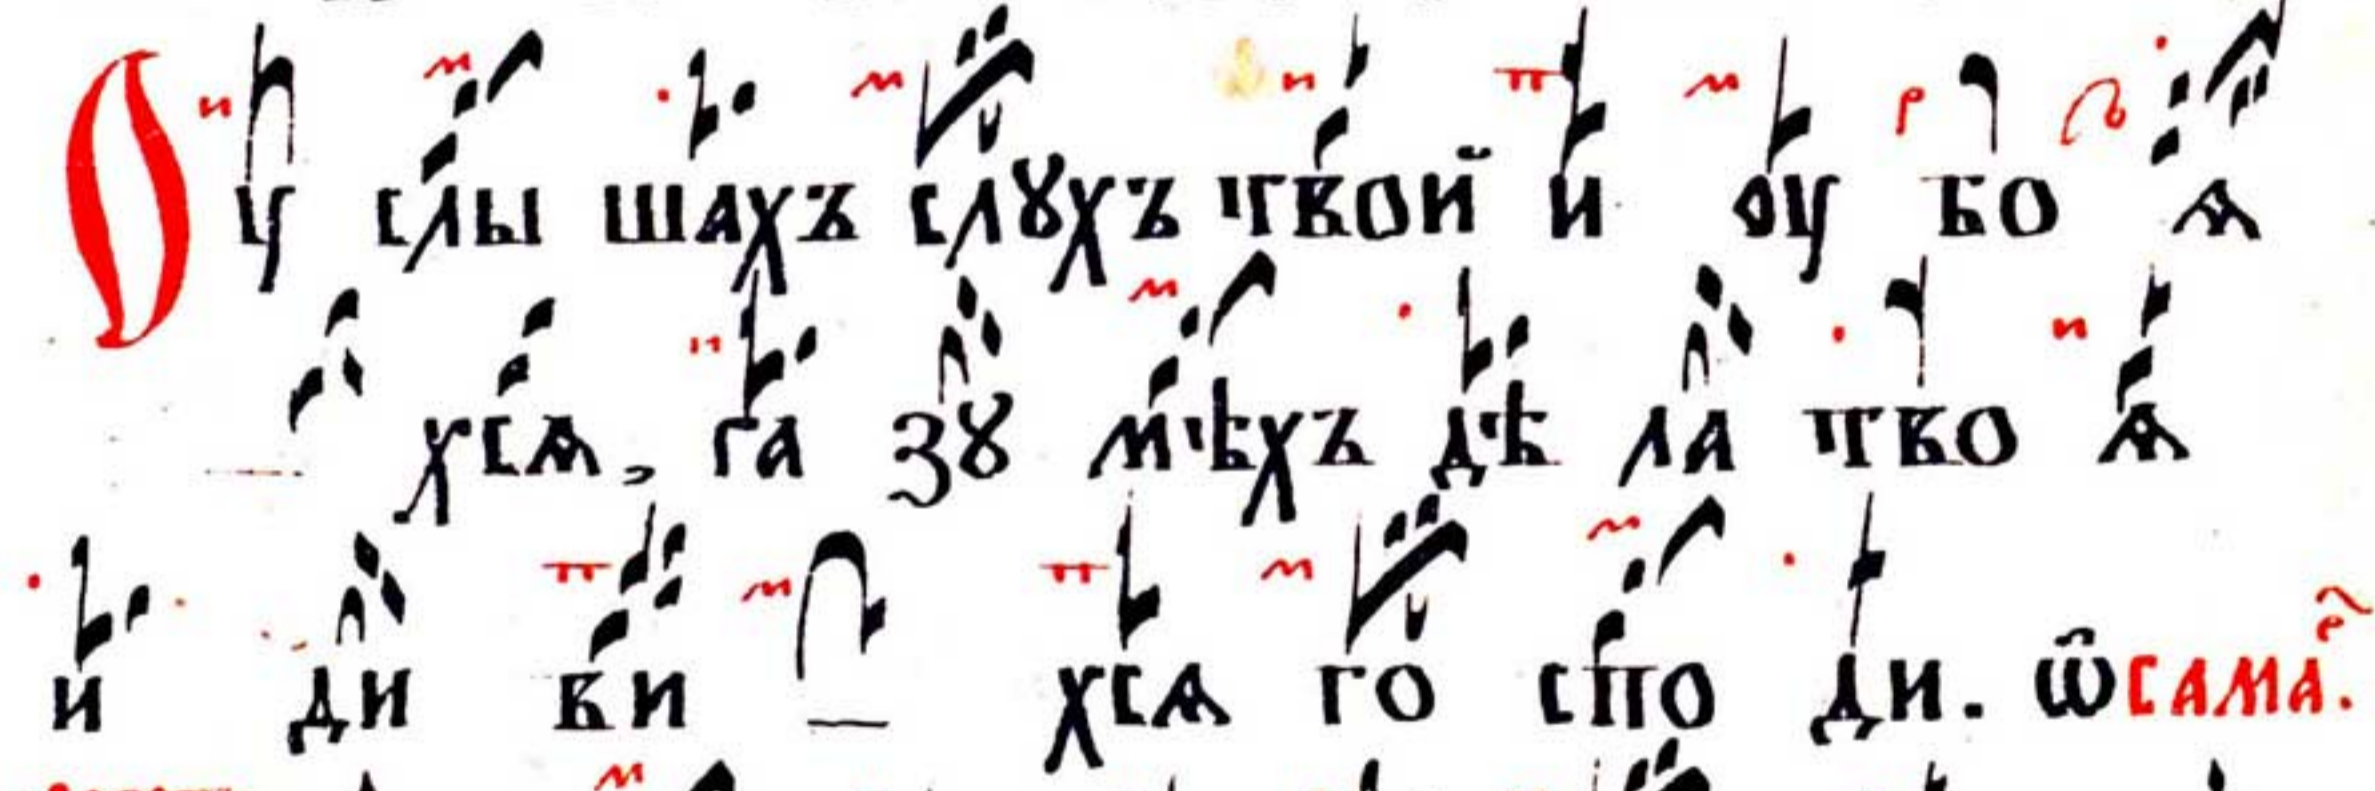 Оу слы шахъ слꙋхъ твой и оу бо ѧ
хсѧ, ра зꙋ мѣхъ дѣ ла тво ѧ
и ди ви хсѧ го спо ди. ѿ сама.